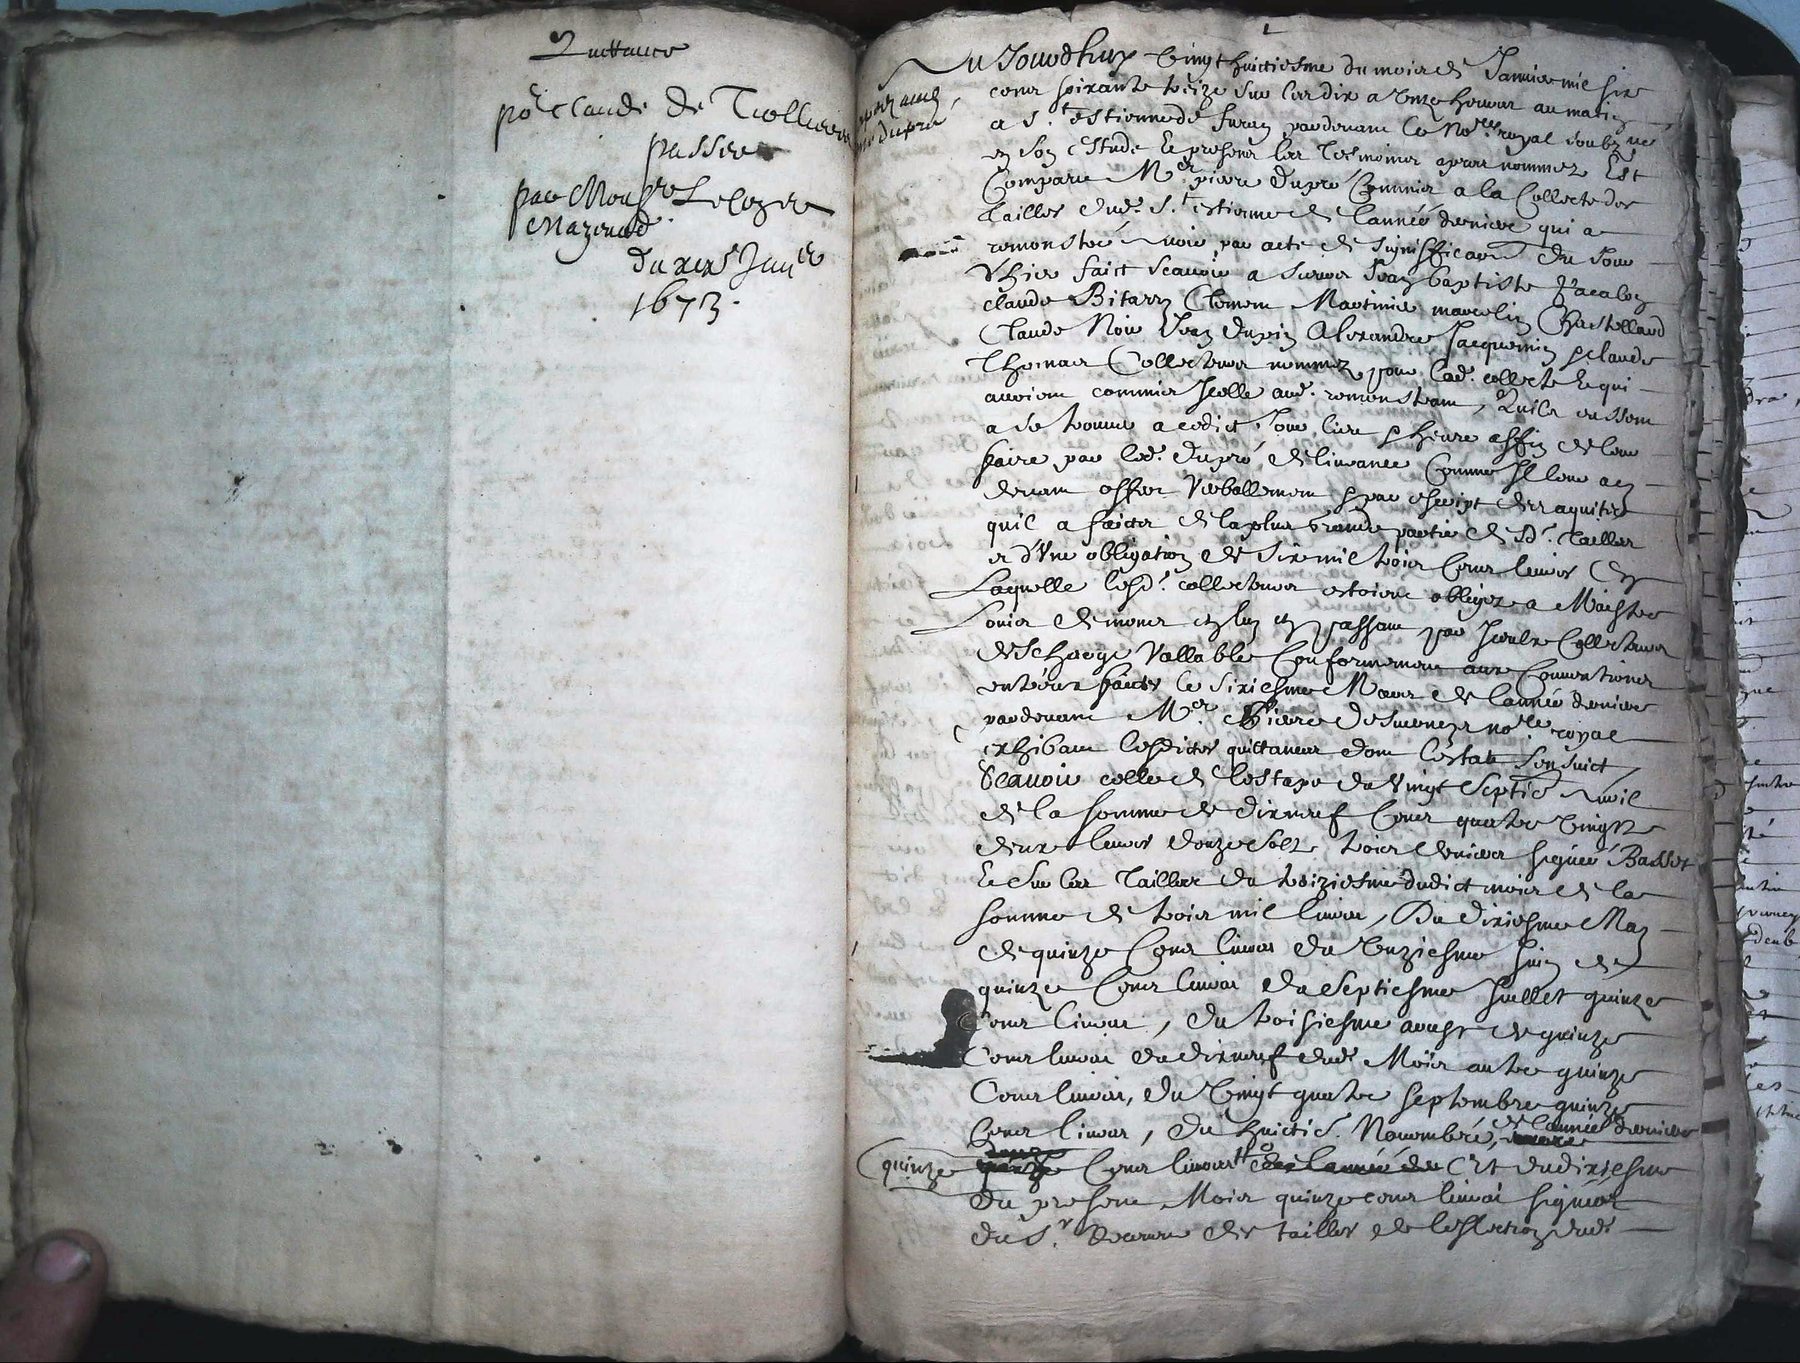 Quittance
por Claude de Trollieres
passee
par Monsr Le Cogere
Mazenod
du xixe Janer
1673.
me dupre
Au Jourdhuy vingt huictiesme du mois de Janvier mil six
cens soixante treize sur les dix a unze heures au matin
a St estienne de furan pardevant le Nore royal soubzné
en son estude et presens les tesmoins apres nommez Est
Comparu Mer pierre dupré Commis a la Collecte des
tailles dud. St estienne de lannée derniere qui a
remonstré avoir par acte de signiffication du jour
dhier faict scavoir a sieurs Jean baptiste
claude Bitarry Clement Martinier marcelin Chastelland
Claude Noir Jean dupin Alexandre Jacquemin & claude
Thomas Collecteurs nommez pour lad. collecte et qui
avoient commis Icelle aud. remonstrant, Quils eussent
a se trouver a cedict Jour lieu & heure affin de leur
faire par led. dupré delivrance Comme Il leur a en
devant offert verballement & par escript des aquitz
quil a faictes de la plus grande partie desd. tailles
et d'Une obligation de six mil trois Cens livres En
Laquelle lesd. collecteurs estoient obligez a Maistre
Louis demones en luy en passant par Iceulx Collecteurs
descharge Vallable Conformement aux Conventions
entreux faictes le sixiesme Mars de lannée derniere
pardevant Mer Pierre desverneys nore royal
exhibant lesdictes quittances dont lestat sensuict
Scavoir celle de lestape du vingt septie Avril
de la somme de dixneuf Cens quatre vingtz
deux livres douze solz trois deniers signée Basset
Et sur les tailles du treiziesme dudict mois de la
somme de trois mil livres, Du dixiesme May
de quinze Cens livres du unziesme Juin de
quinze Cens livres du septiesme Juillet quinze
Cens livres, du troisiesme aoust de quinze
Cens livres du dixneuf dud. Mois autre quinze
Cens livres, du vingt quatre septembre quinze
Cens livres, du huictie. Novembre, de lannée derniere
quinze Cens livres Et du dixiesme
du present Mois quinze cens livres signées
du Sr Receveur des tailles de leslection dud.